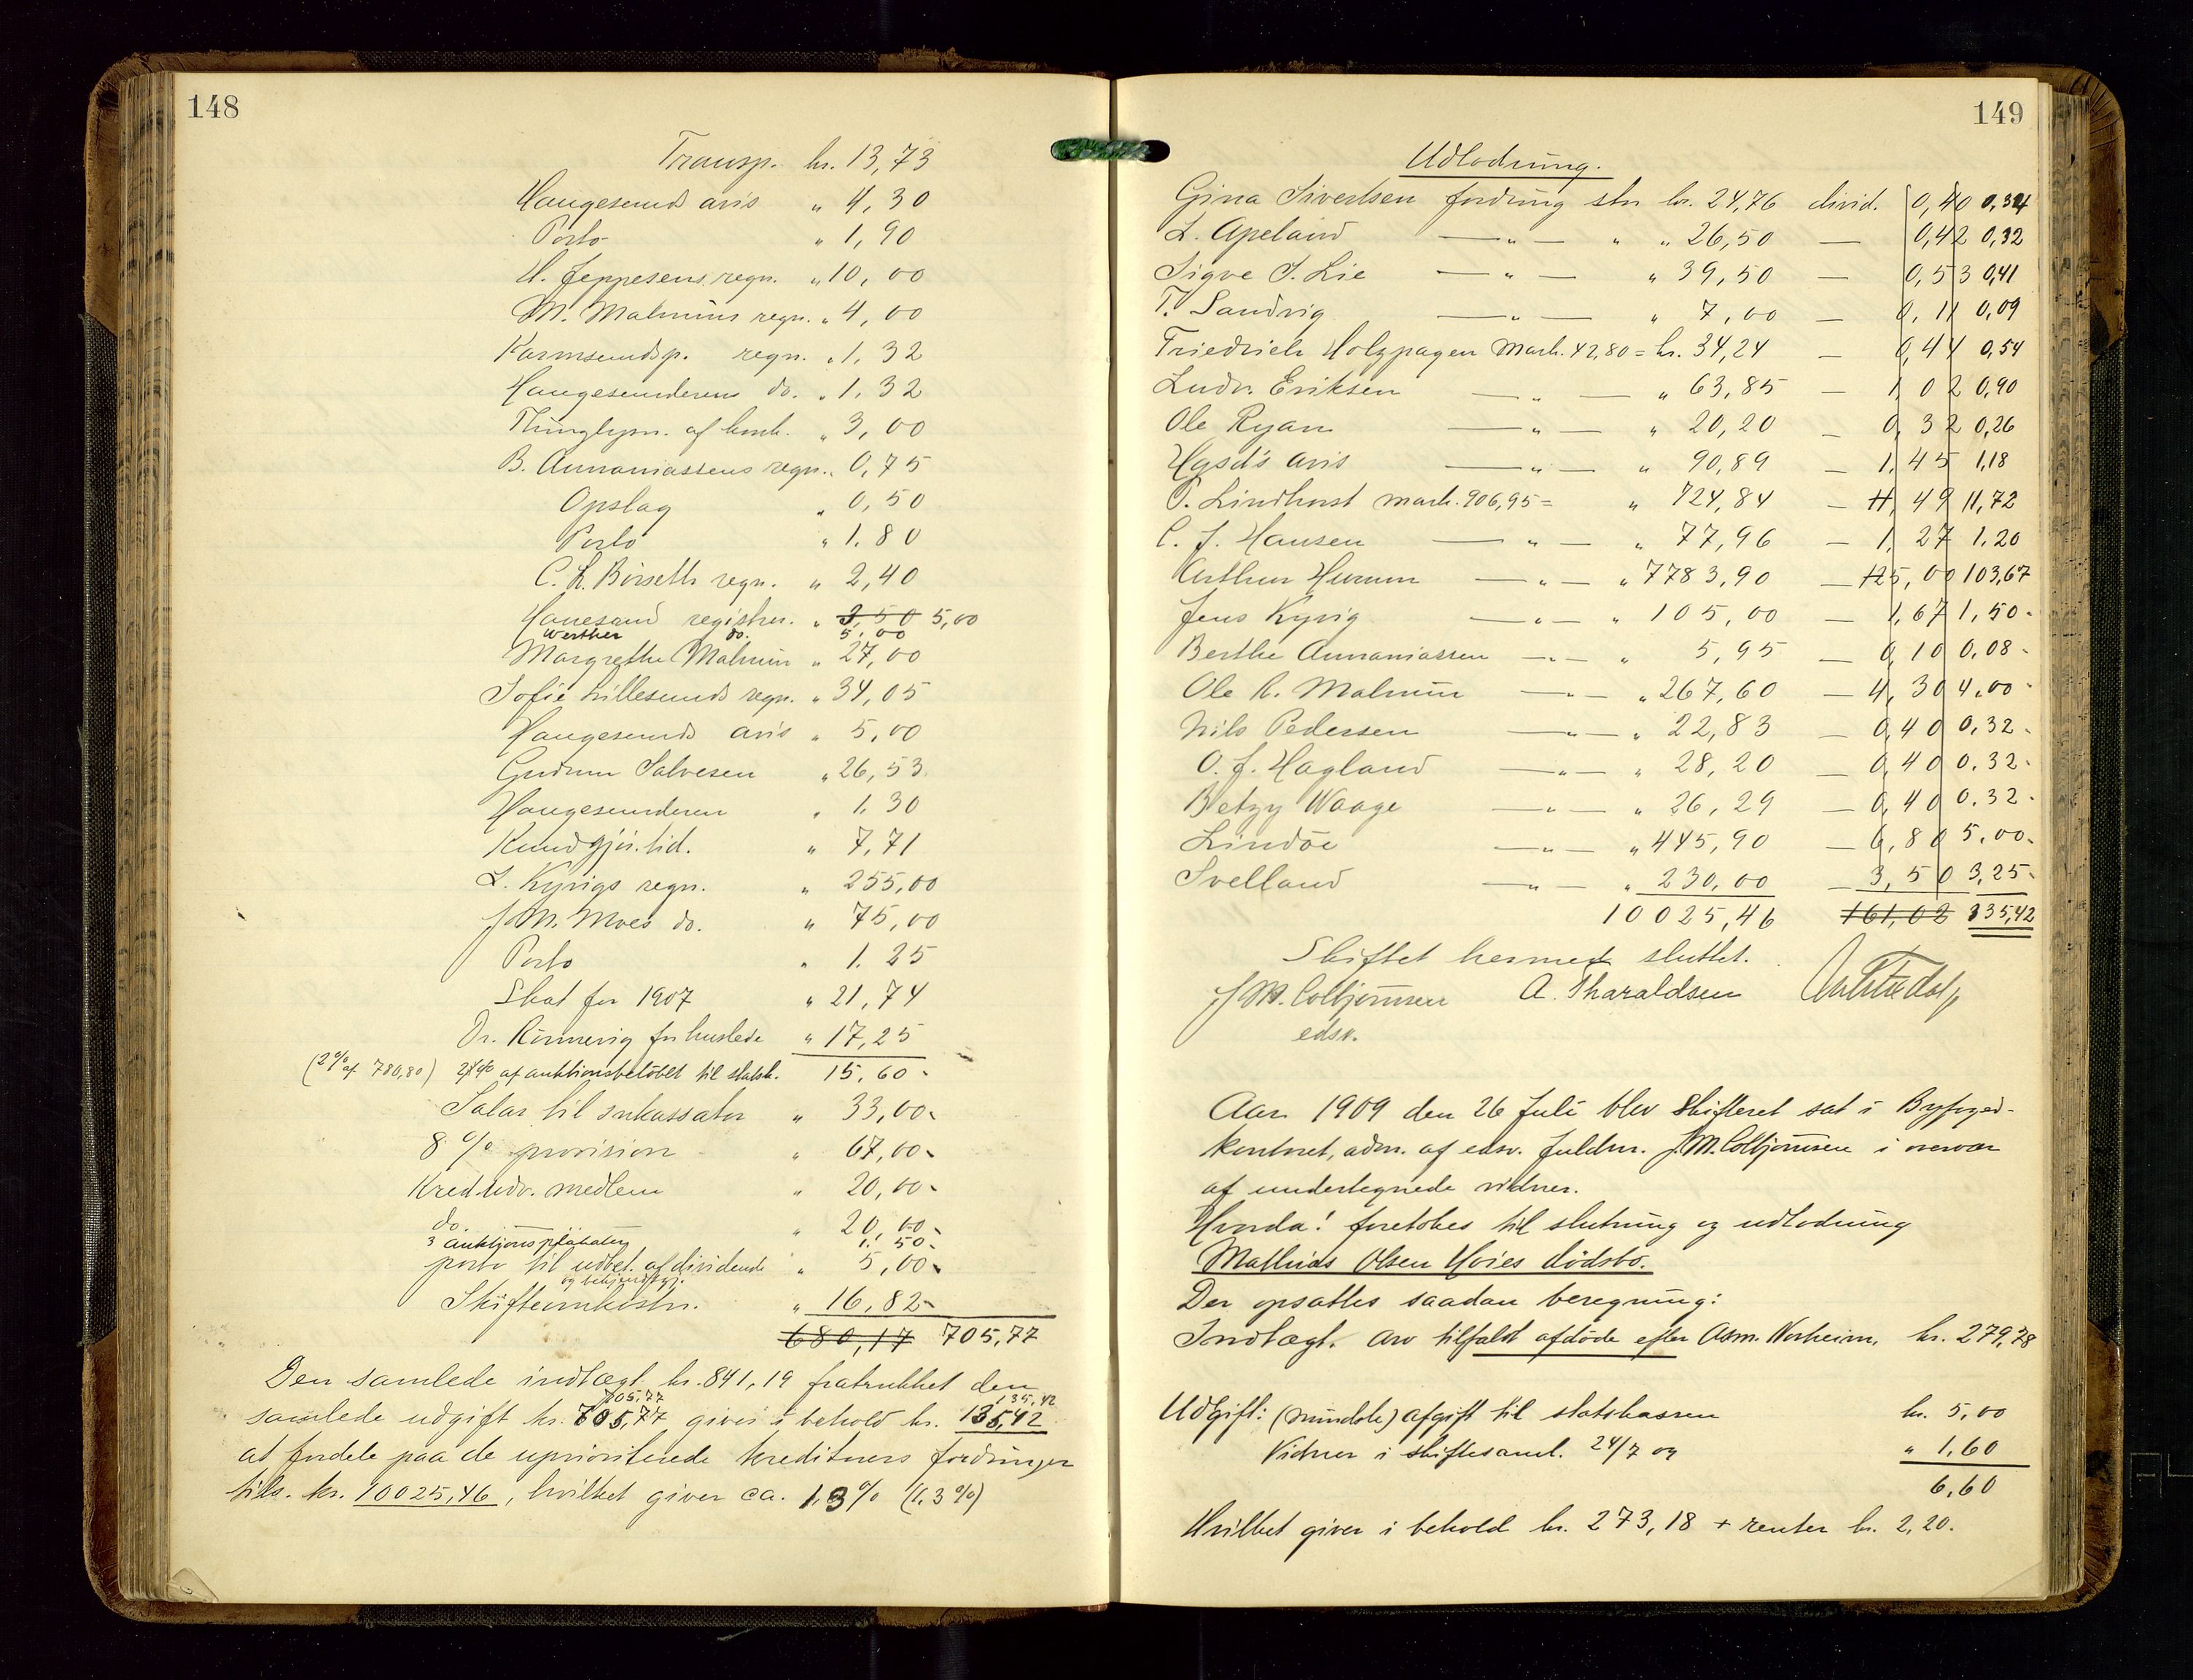 148
Transp. kr. 13,73
Haugesunds avis " 4,30
Porto " 1,90
H. Jeppesens regn. " 10,00
M. Malmins regn. " 4,00
Karmsundsp. regn. " 1,32
Haugesunderens do. " 1,32
Thinglysn. af konk. " 3,00
B. Annaniassens regn. " 0,75
Opslag " 0,50
Porto " 1.80
C. H. Börseth regn. " 2,40
Hanesand registr. " 3,50 5,00
Werther do. 5,00
Margrethe Malmin " 27,00
Sofie Lillesunds regn. " 34,05
Haugesunds avis " 5,00
Gudrun Salvesen " 26,53
Haugesunderen " 1.30
Kundgjör. tid. " 7,71
L. Kyvigs regn. " 255,00
J. M. Moes do. " 75,00
Porto " 1.25
Skat for 1907 " 21,74
Dr. Rönnevig for husleie " 17,25
(2% af 780,80) 2% af auktionsbelöbet til statsk. 15,60
Salar til inkassator " 33,00
8 % provision " 67,00
Kred.udv. medlem " 20,00
do. " 20,00
3 auktjonsplakater 1,50
porto til udbet. af dividende " 5,00
og bekjendtgj.
Skifteomkostn. " 16,82
680,17 705,77
Den samlede indtægt kr. 841,19 fratrukket den
705,77 135,42
samlede udgift kr. 705,77 giver i behold kr. 135,42
at fordele paa de uprioriterede kreditorers fordringer
tils. kr. 10025,46, hvilket giver ca. 1,3% (1,3%)
149
Udlodning.
Gina Sivertsen fordring stor kr. 24,76 divid. 0,40 0,34
L. Apeland — " — " " 26,50 — 0,42 0,32
Sigve S. Lie — " — " 39,50 — 0,53 0,41
T. Sandvig — " — " 7,00 — 0,11 0,09
Friedrich Holzpagen Mark. 42,80 = kr. 34,24 — 0,44 0,54
Ludv. Eriksen — " — " 63,85 — 1,02 0,90
Ole Ryan — " — " 20,20 — 0,32 0,26
Hgsd's avis — " — " 90,89 — 1,45 1,18
P. Lindhorst mark. 906,95 = " 724,84 — 11,49 11,72
C. J. Hansen — " — " 77,96 — 1,27 1.20
Arthur Humm — " — " 7783,90 — 125,00 103,67
Jens Kyvig — " — " 105,00 — 1,67 1,50
Berthe Annaniassen — " — " 5,95 — 0,10 0,08
Ole R. Malmin — " — " 267,60 — 4,30 4,00
Nils Pedersen — " — " 22,83 — 0,40 0,32
O. J. Hagland — " — " 28,20 — 0,40 0.32
Betzy Waage — " — " 26,29 — 0,40 0.32
Lindöe — " — " 445,90 — 6,80 5,00
Svelland — " — " 230,00 — 3,50 3,25
10025,46 161,02 135,42
Skiftet hermed sluttet.
J. M. Colbjörnsen A. Tharaldsen
edsv.
Aar 1909 den 26 Juli blev skifteret sat i Byfoged-
kontoret, adm. af edsv. fuldm. J. M. Colbjörnsen i overvær
af undertegnede vidner.
Hvorda! foretokes til slutning og udlodning
Mathias Olsen Höies dödsbo.
Der opsattes saadan beregning:
Indtægt. Arv tilfaldt afdöde efter Asm. Norheim. kr. 279,78
Udgift: (mindste) afgift til statskassen kr. 5,00
Vidner i skiftesaml. 24/7 og " 1,60
6,60
Hvilket giver i behold kr. 273,18 + renter kr. 2,20.